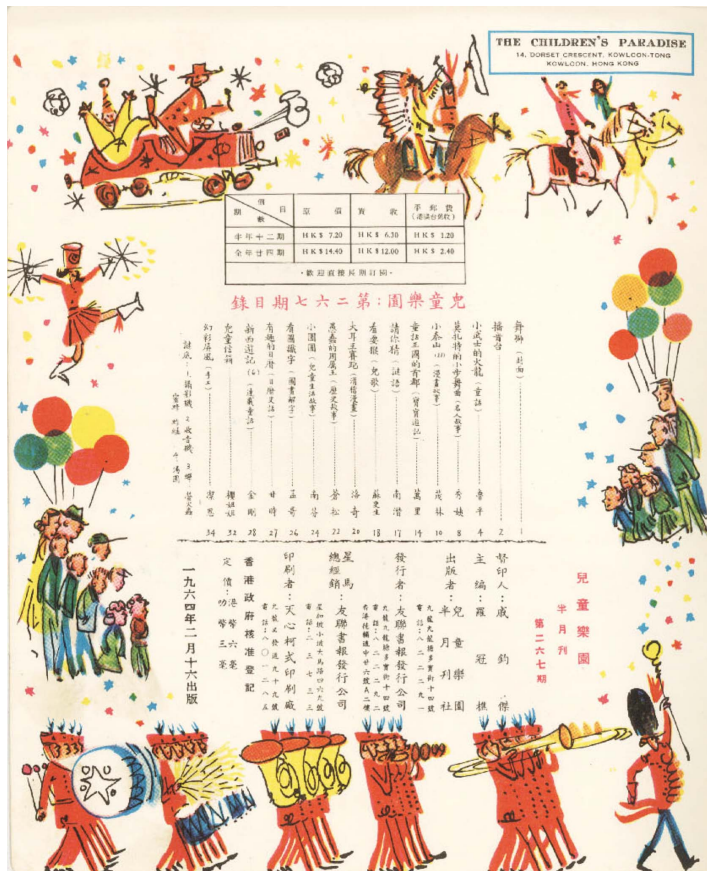 THE CHILDREN'S PARADISE
14, DORSET CRESCENT, KOWLOON-TONG
KOWLOON, HONG KONG
期數 價目 原價 實收 平郵費(港澳台免收)
半年十二期 HK$ 7.20 HK$ 6.30 HK$ 1.20
全年廿四期 HK$ 14.40 HK$ 12.00 HK$ 2.40
·歡迎直接長期訂閱·
兒童樂園:第二六七期目錄
舞獅(封面) 1
播音台 2
小武士的火龍(童話) 魯平 4
莫扎特的小步舞曲(名人故事) 秀娥 8
小泰山(漫畫故事) 茂林 10
童話王國的首都(寶寶遊記) 萬里 14
請你猜(謎語) 南潛 17
看耍猴(兒歌) 蘇更生 18
大耳王賽跑(滑稽漫畫) 洛奇 20
愚蠢的周厲王(歷史故事) 蒼松 22
小圓圓(兒童生活故事) 南芬 24
看圖識字(圖畫解字) 孟奇 26
有趣的日曆(日曆史話) 甘時 27
新西遊記(6)(連載童話) 金剛 28
兒童信箱 楊姐姐 32
幻彩屏風(手工) 潔恩 34
謎底:1.攝影機 2.收音機 3.蟬 螢火蟲
兒童樂園
半月刊
第二六七期
督印人:戚鈞傑
主編:羅冠樵
出版者:兒童樂園半月刊社
九龍九龍塘多實街十四號
電話:八二二二九一
發行者:友聯書報發行公司
九龍九龍塘多實街十四號
電話:八二二二九二
香港德輔道中廿六號A二樓
星馬總經銷:友聯書報發行公司
星加坡小坡大馬路四六九號
電話:二三七三三
印刷者:天心柯式印刷廠
電話:八〇一二八五
香港政府核准登記
定價:港幣六毫
叻幣三毫
一九六四年二月十六出版